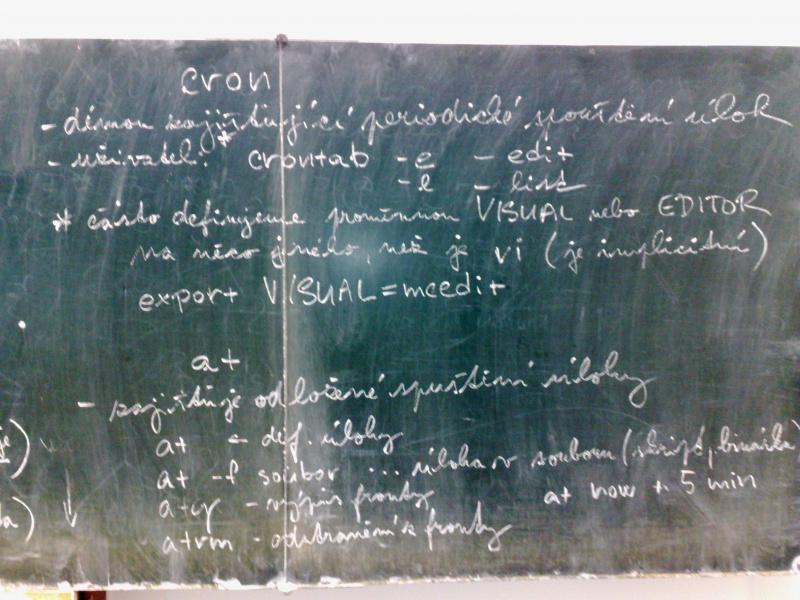 cron
- démon zajišťující periodické spouštění úlok
- uživatel:* crontab -e - edit
-l - list
* často definujeme proměnnou VISUAL nebo EDITOR
na něco jiného, než je vi (je implicitní)
export VISUAL=mcedit
at
- zajišťuje odložené spuštění úlohy
at - def. úlohy
at -f soubor ... úloha v souboru (skript, binárka)
at now + 5 min
atq - výpis fronty
atrm - odstranění z fronty